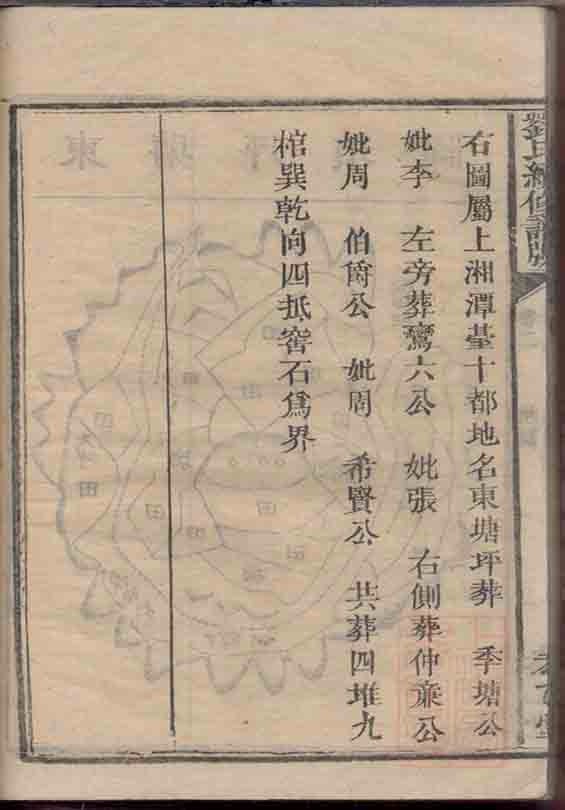 劉氏續修譜牒
右圖屬上湘潭臺十都地名東塘坪葬 季塘公
妣李 左旁葬鸞六公 妣張 右側葬仲亷公
妣周 伯爵公 妣周 希賢公 共葬四堆九
棺巽乾向四抵窖石爲界